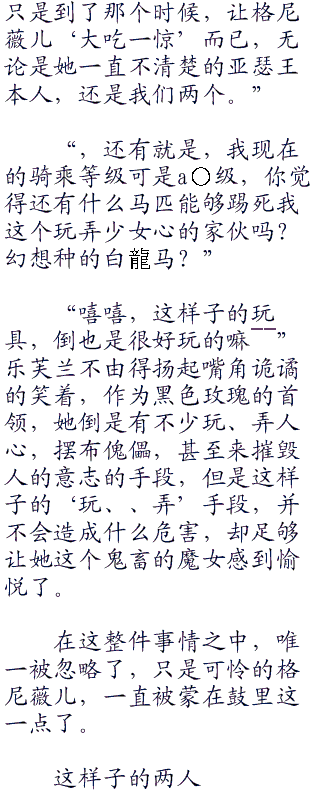 只是到了那个时候，让格尼
薇儿‘大吃一惊’而已，无
论是她一直不清楚的亚瑟王
本人，还是我们两个。”
“，还有就是，我现在
的骑乘等级可是a〇级，你觉
得还有什么马匹能够踢死我
这个玩弄少女心的家伙吗？
幻想种的白龍马？”
“嘻嘻，这样子的玩
具，倒也是很好玩的嘛――”
乐芙兰不由得扬起嘴角诡谲
的笑着，作为黑色玫瑰的首
领，她倒是有不少玩、弄人
心，摆布傀儡，甚至来摧毁
人的意志的手段，但是这样
子的‘玩、、弄’手段，并
不会造成什么危害，却足够
让她这个鬼畜的魔女感到愉
悦了。
在这整件事情之中，唯
一被忽略了，只是可怜的格
尼薇儿，一直被蒙在鼓里这
一点了。
这样子的两人